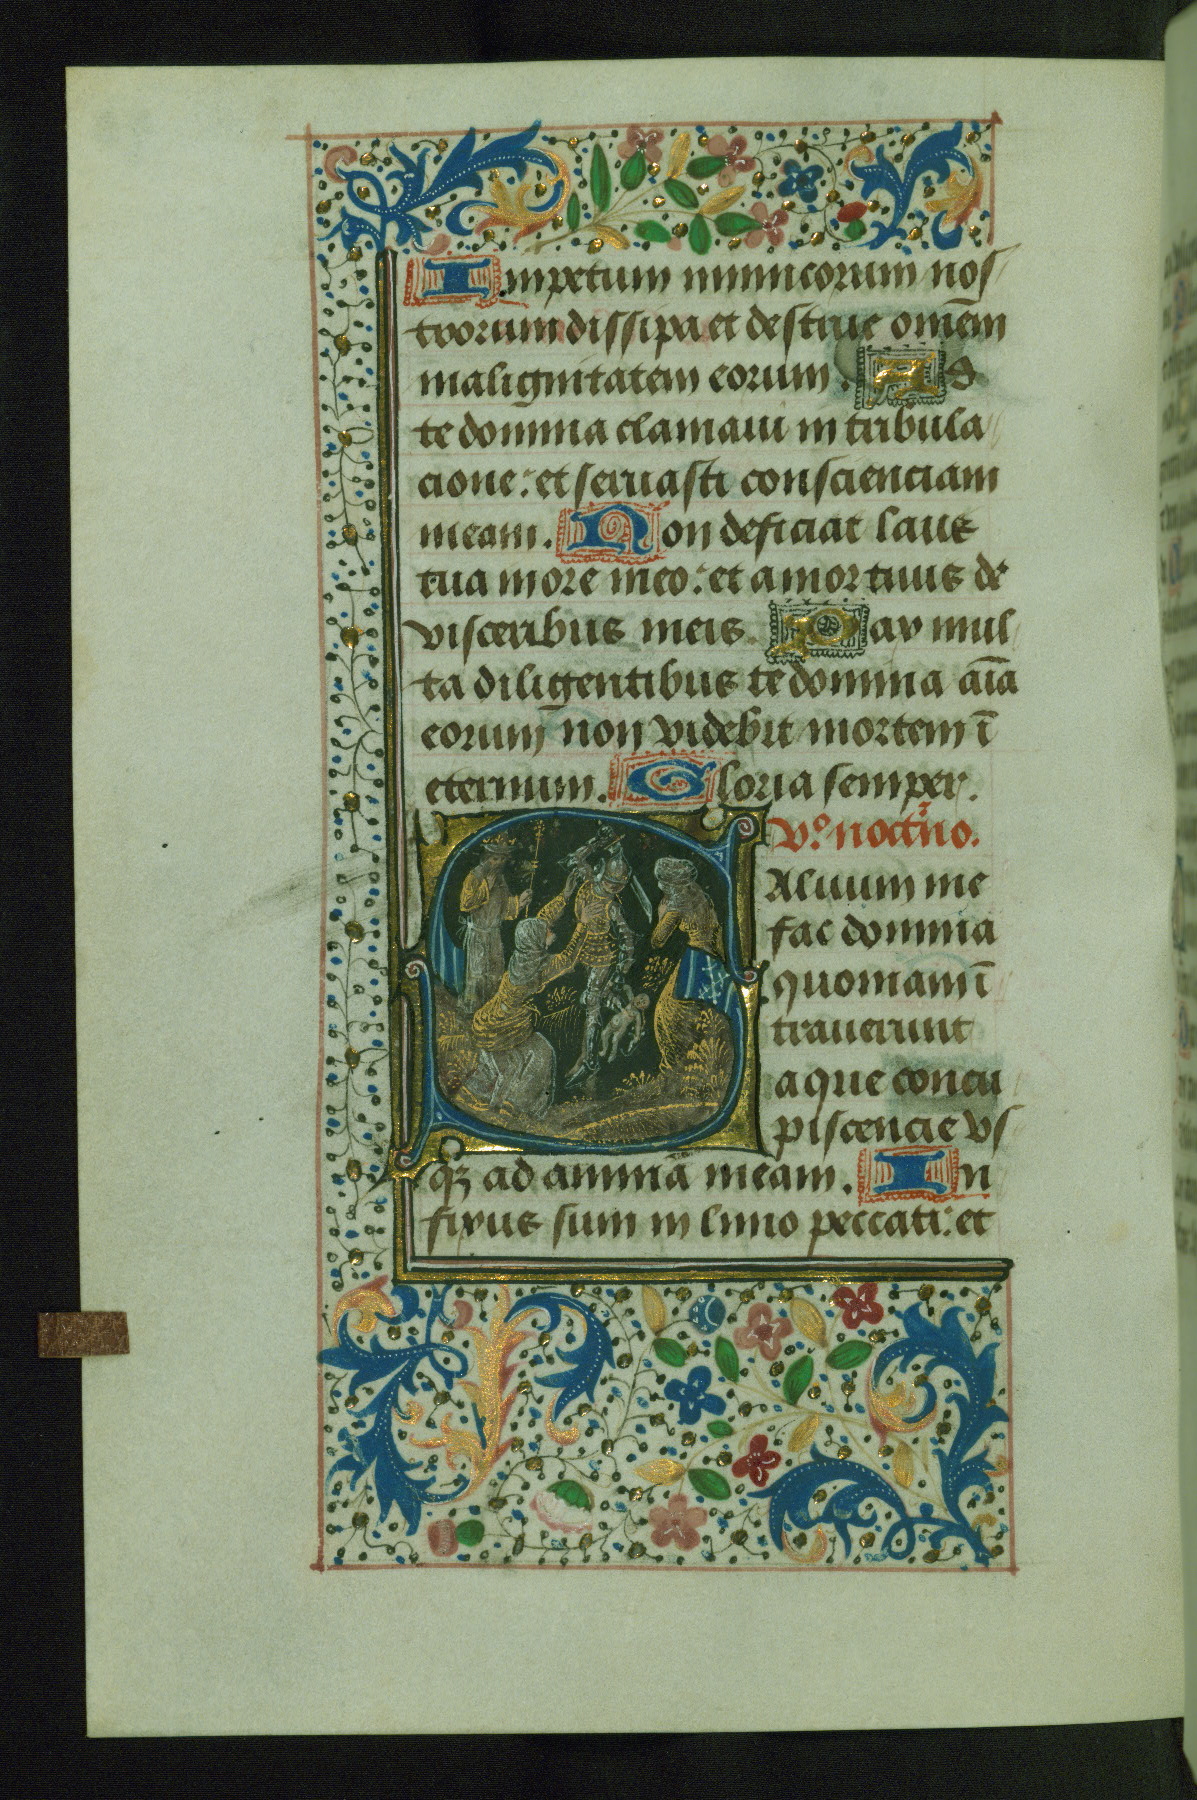 Impetum inimicorum nos
trorum dissipa et destrue om̄em
malignitatem eorum. Ad
te domina clamaui in tribula
cione: et seruasti conscienciam
meam. Non deficiat laus
tua in ore meo: et a mortuus de
visceribus meis. Pax mul
ta diligentibus te domina aīa
eorum non videbit mortem ī
eternum. Gloria semper.
Vº noct͛no.
Aluum me
fac domina
quoniam ī
trauerunt
aque concu
piscencie vs
qꝫ ad animā meam. In
fixus sum in limo peccati: et